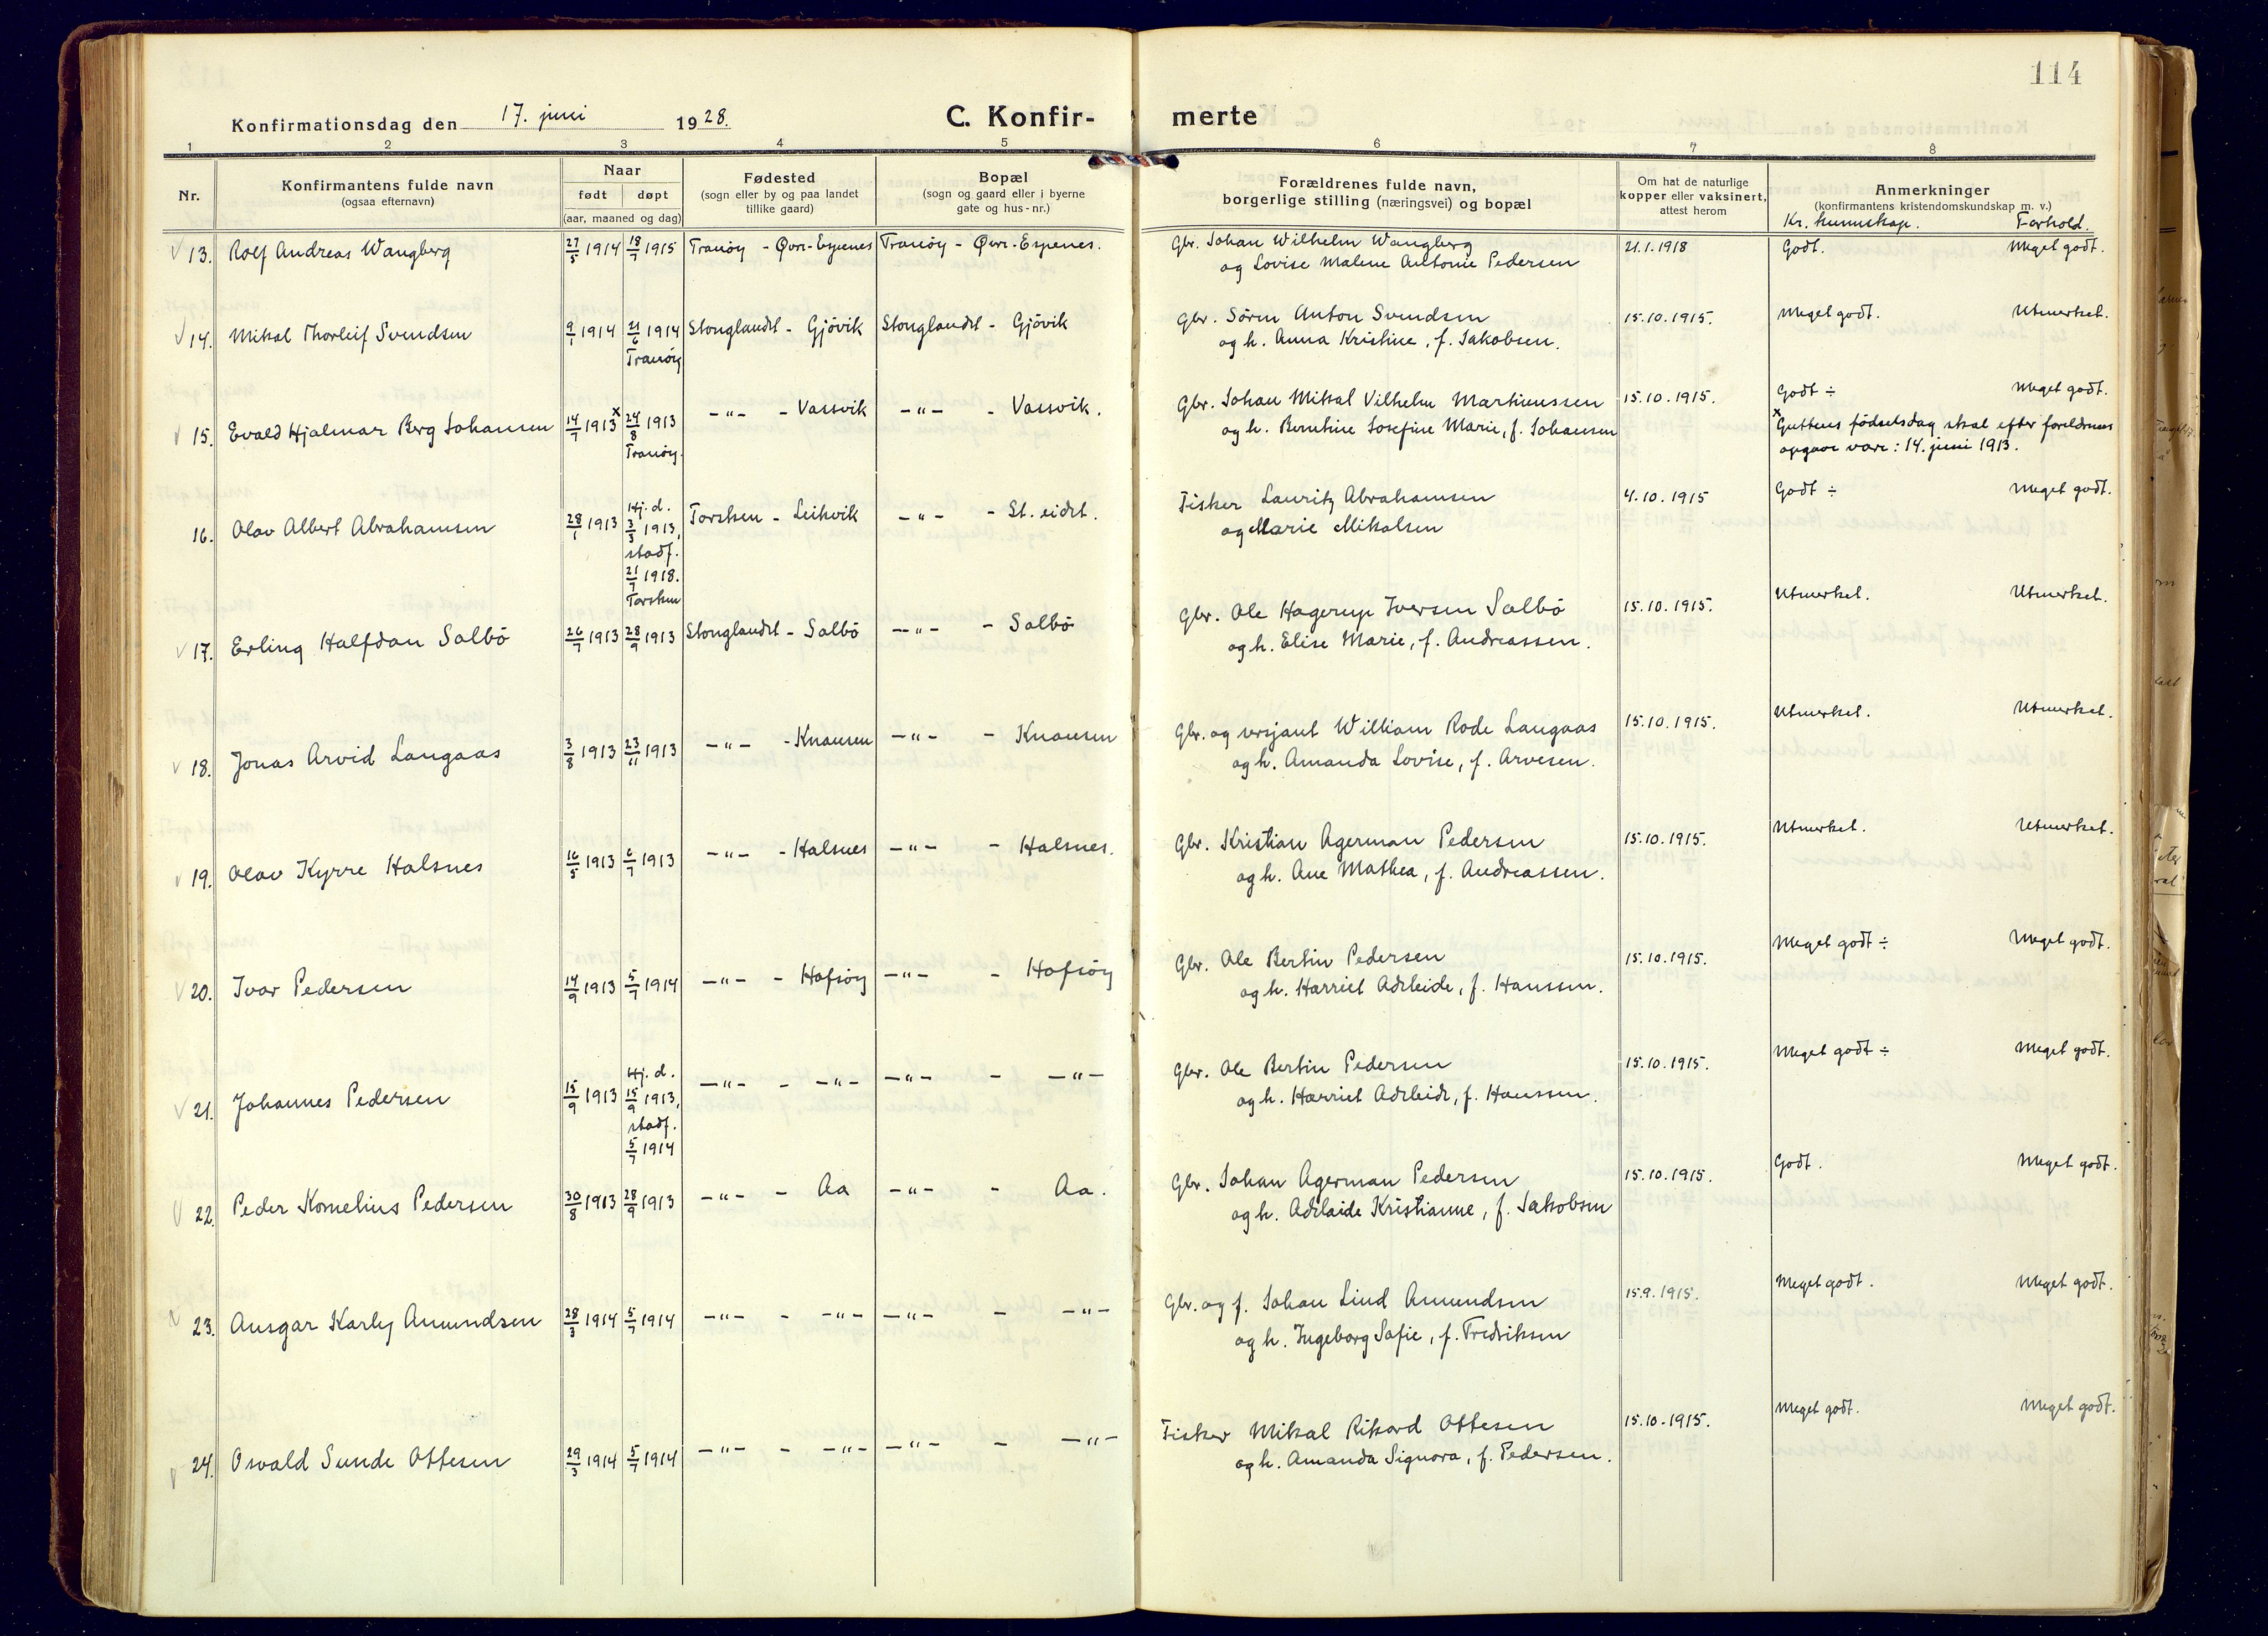 114
Konfirmationsdag den 17. juni 1928.
C. Konfirmerte
1 2 3 4 5 6 7 8
Nr.
Konfirmantens fulde navn
(ogsaa efternavn)
Naar
født døpt
(aar, maaned og dag)
Fødested
(sogn eller by og paa landet
tillike gaard)
Bopæl
(sogn og gaard eller i byerne
gate og hus-nr.)
Forældrenes fulde navn,
borgerlige stilling (næringsvei) og bopæl
Om hat de naturlige
kopper eller vaksinert,
attest herom
Anmerkninger
(konfirmantens kristendomskundskap m. v.)
Kr. kunnskap. Forhold.
13. Rolf Andreas Wangberg 27/5 1914 18/7 1915 Tranöy - Øvre-Espenes Tranöy - Øvre-Espenes. Gbr. Johan Wilhelm Wangberg 21.1.1918 Godt. Meget godt.
og Lovise Malene Antonie Pedersen
14. Mikal Thorleif Svendsen 9/1 1914 21/6 1914 Stonglandet - Gjövik Stonglandet - Gjövik Gbr. Sören Anton Svendsen 15.10.1915. Meget godt. Utmerket.
Tranöy
og h. Anna Kristine, f. Jakobsen.
15. Evald Hjalmar Berg Johansen 14/7 1913 x 24/8 1913 -"- - Vassvik -"- - Vassvik. Gbr. Johan Mikal Vilhelm Martinussen 15.10.1915. Godt ÷ Meget godt.
Tranöy.
og h. Berntine Josefine Marie, f. Johansen
x Guttens födselsdag skal efter foreldrenes
opgave være: 14. juni 1913.
16. Olav Albert Abrahamsen 28/1 1913 Hj. d. 3/3 1913, Torsken - Leikvik -"- - St. eidet. Fisker Lauritz Abrahamsen 4.10.1915 Godt ÷ Meget godt.
stadf.
21/7 1918.
Torsken
og Marie Mikalsen
17. Erling Halfdan Salbö 26/7 1913 28/9 1913 Stonglandet - Salbö -"- - Salbö Gbr. Ole Hagerup Iversen Salbö 15.10.1915. Utmerket. Utmerket.
og h. Elise Marie, f. Andreassen.
18. Jonas Arvid Langaas 3/8 1913 23/11 1913 -"- - Knausen -"- - Knausen Gbr. og versjant William Rode Langaas 15.10.1915. Utmerket. Utmerket.
og h. Amanda Lovise, f. Arvesen.
19. Olav Kyrre Halsnes 16/5 1913 6/7 1913 -"- - Halsnes -"- - Halsnes. Gbr. Kristian Agerman Pedersen 15.10.1915. Utmerket. Utmerket.
og h. Ane Mathea, f. Andreassen.
20. Ivar Pedersen 14/9 1913 5/7 1914 -"- - Hofsöy -"- - Hofsöy Gbr. Ole Bertin Pedersen 15.10.1915. Meget godt ÷ Meget godt.
og h. Harriet Adeleide, f. Hanssen.
21. Johannes Pedersen 15/9 1913 Hj. d. 15/9 1913, -"- - -"- -"- - -"- Gbr. Ole Bertin Pedersen 15.10.1915. Meget godt ÷ Meget godt.
stadf.
5/7 1914
og h. Harriet Adeleide, f. Hanssen.
22. Peder Kornelius Pedersen 30/8 1913 28/9 1913 -"- - Aa -"- - Aa. Gbr. Johan Agerman Pedersen 15.10.1915. Godt. Meget godt.
og h. Adelaide Kristianne, f. Jakobsen
23. Ansgar Karly Amundsen 28/3 1914 5/7 1914 -"- - -"- -"- - -"- Gbr. og f. Johan Lind Amundsen 15.9.1915. Meget godt. Meget godt.
og h. Ingeborg Sofie, f. Fredriksen
24. Osvald Sunde Ottesen 29/3 1914 5/7 1914 -"- - -"- -"- - -"- Fisker Mikal Rikard Ottesen 15.10.1915. Meget godt. Meget godt.
og h. Amanda Signora, f. Pedersen.